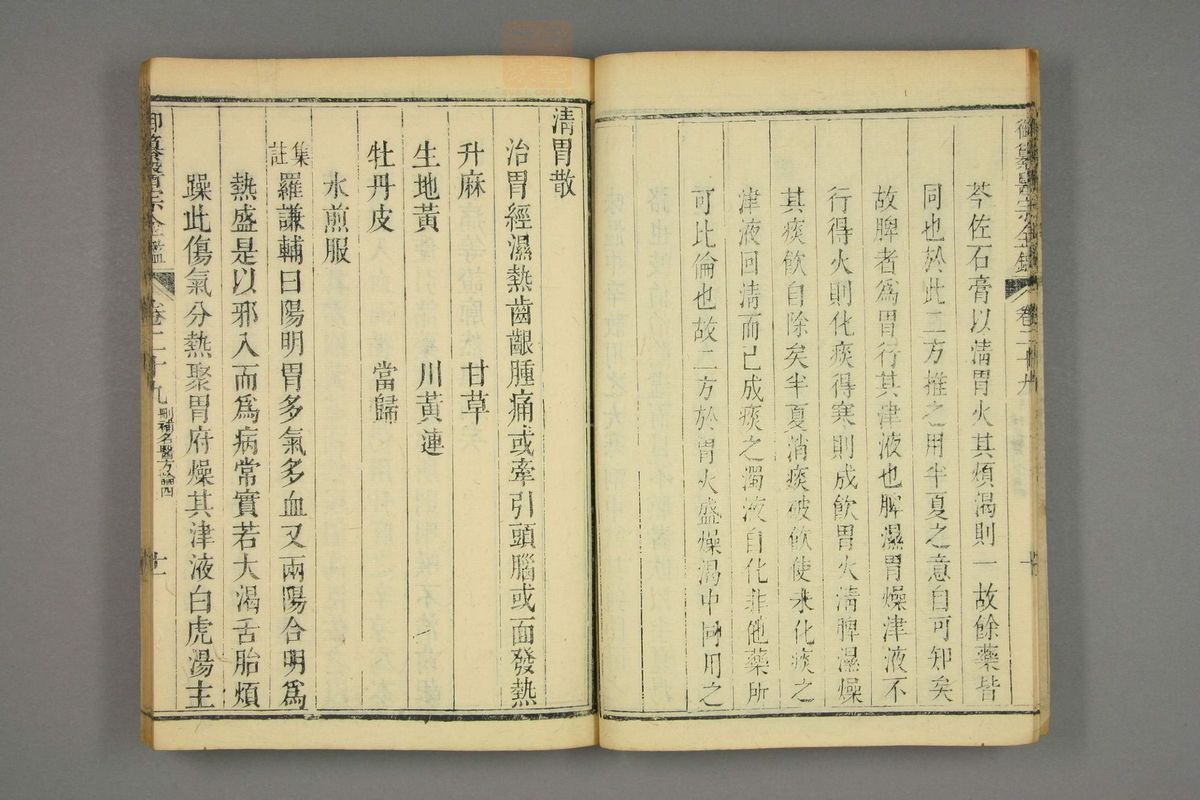 御纂醫宗金鑑 卷二十九 十
芩佐石膏以清胃火其煩渴則一故餘藥皆
同也於此二方推之用半夏之意自可知矣
故脾者為胃行其津液也脾濕胃燥津液不
行得火則化痰得寒則成飲胃火清脾濕燥
其痰飲自除矣半夏消痰破飲使未化痰之
津液回清而已成痰之濁液自化非他藥所
可比倫也故二方於胃火盛燥渴中同用之
清胃散
治胃經濕熱齒齦腫痛或牽引頭腦或面發熱
升麻 甘草
生地黃 川黃連
牡丹皮 當歸
水煎服
集註羅謙輔曰陽明胃多氣多血又兩陽合明爲
熱盛是以邪入而爲病常實若大渴舌胎煩
躁此傷氣分熱聚胃府燥其津液白虎湯主
御纂醫宗金鑑 卷二十九 刪補名醫方論四 十一